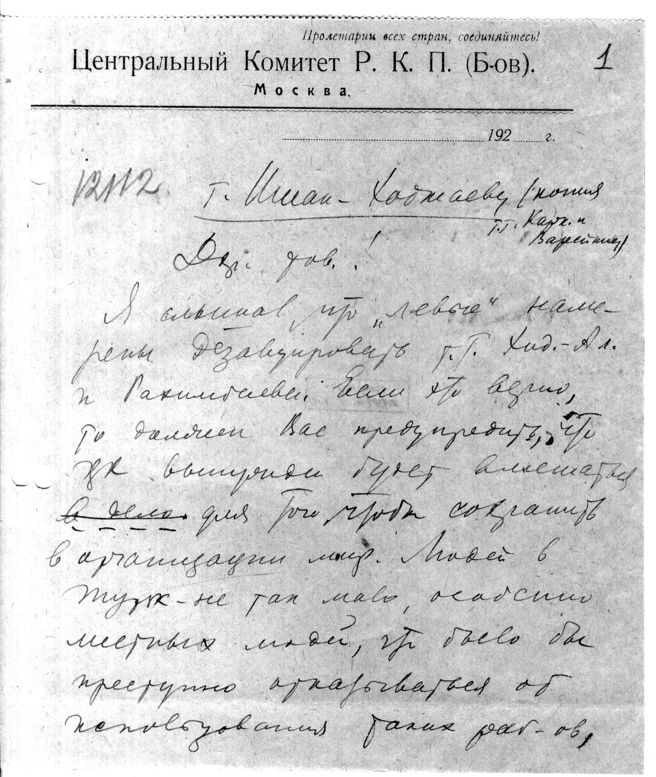 Пролетарии всех стран, соединяйтесь!
Центральный Комитет Р. К. П. (Б-ов).
1
Москва.
192 г.
т. Ишан-Ходжаеву (копия
т.т. Карк. и
Варейкису)
Дор. тов.!
Я слышал, что „левые“ наме-
рены дезавуировать т.т. Ход.-
и Рахимбаева. Если это верно,
то должен Вас предупредить, что
ЦК вынужден будет вмешаться
в дело для того, чтобы сохранить
в организации мир. Людей в
Турк-не так мало, особенно
местных людей, что было бы
преступно отказываться от
использования таких раб-ов,